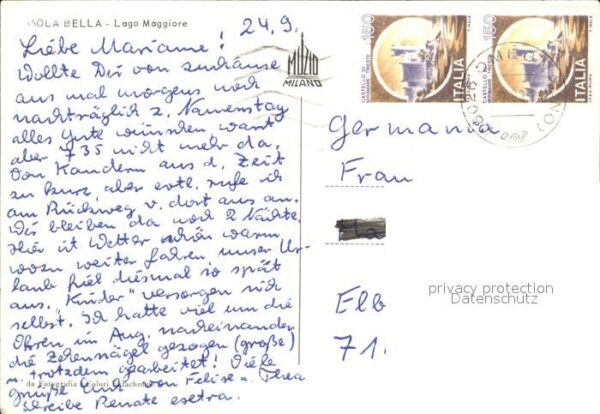 ISOLA BELLA - Lago Maggiore
24.9.
Liebe Marianne!
Wollte Dir von zuhause
aus mal morgens noch
nachträglich z. Namenstag
alles Gute wünschen warst
aber 735 nicht mehr da.
Von Kandern aus d. Zeit
zu kurz, aber evtl. rufe ich
am Rückweg v. dort aus an.
Wir bleiben da noch 2 Nächte.
Hier ist Wetter schön warm
wozu weiter fahren, unser Ur-
laub fiel diesmal so spät
aus. "Kinder" versorgen sich
selbst. Ich hatte viel um die
Ohren im Aug. nacheinander
die Zehennägel gezogen (große)
u. trotzdem gearbeitet! Viele
da Fotografia Colori
Grüße Und von Felise u. Thea
schreibe Renate esetra.
MUZIO
MILANO
150
CASTELLO DI
ITALIA
150
CASTELLO DI
ITALIA
28026 OMEG
Germania
Frau
Elb
71.
privacy protection
Datenschutz